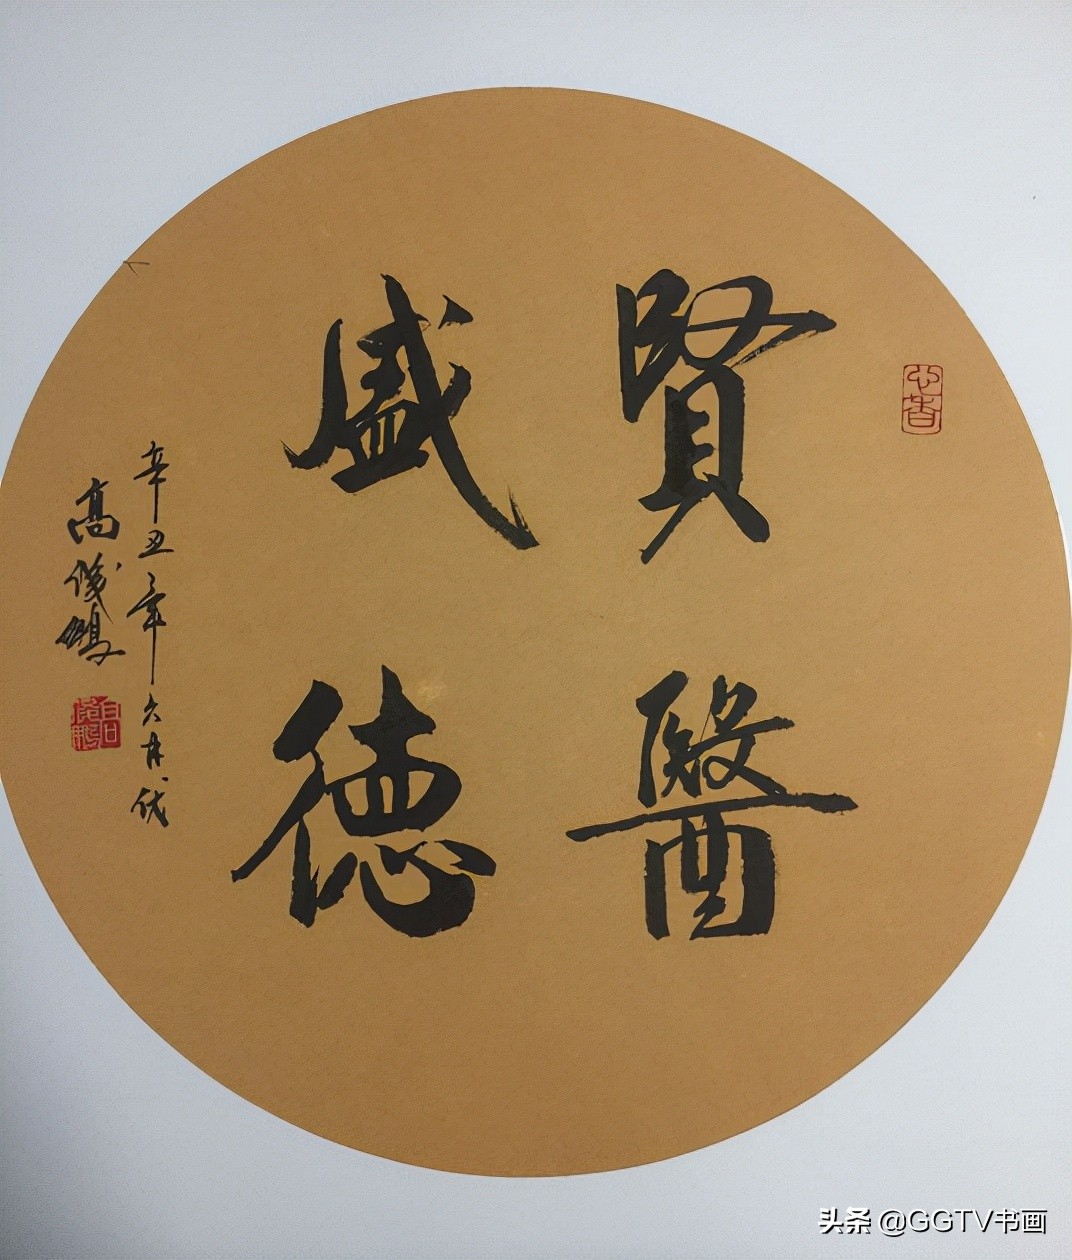 心香
賢醫
盛德
辛丑年六月伏
高俊鵬
头条 @GGTV书画